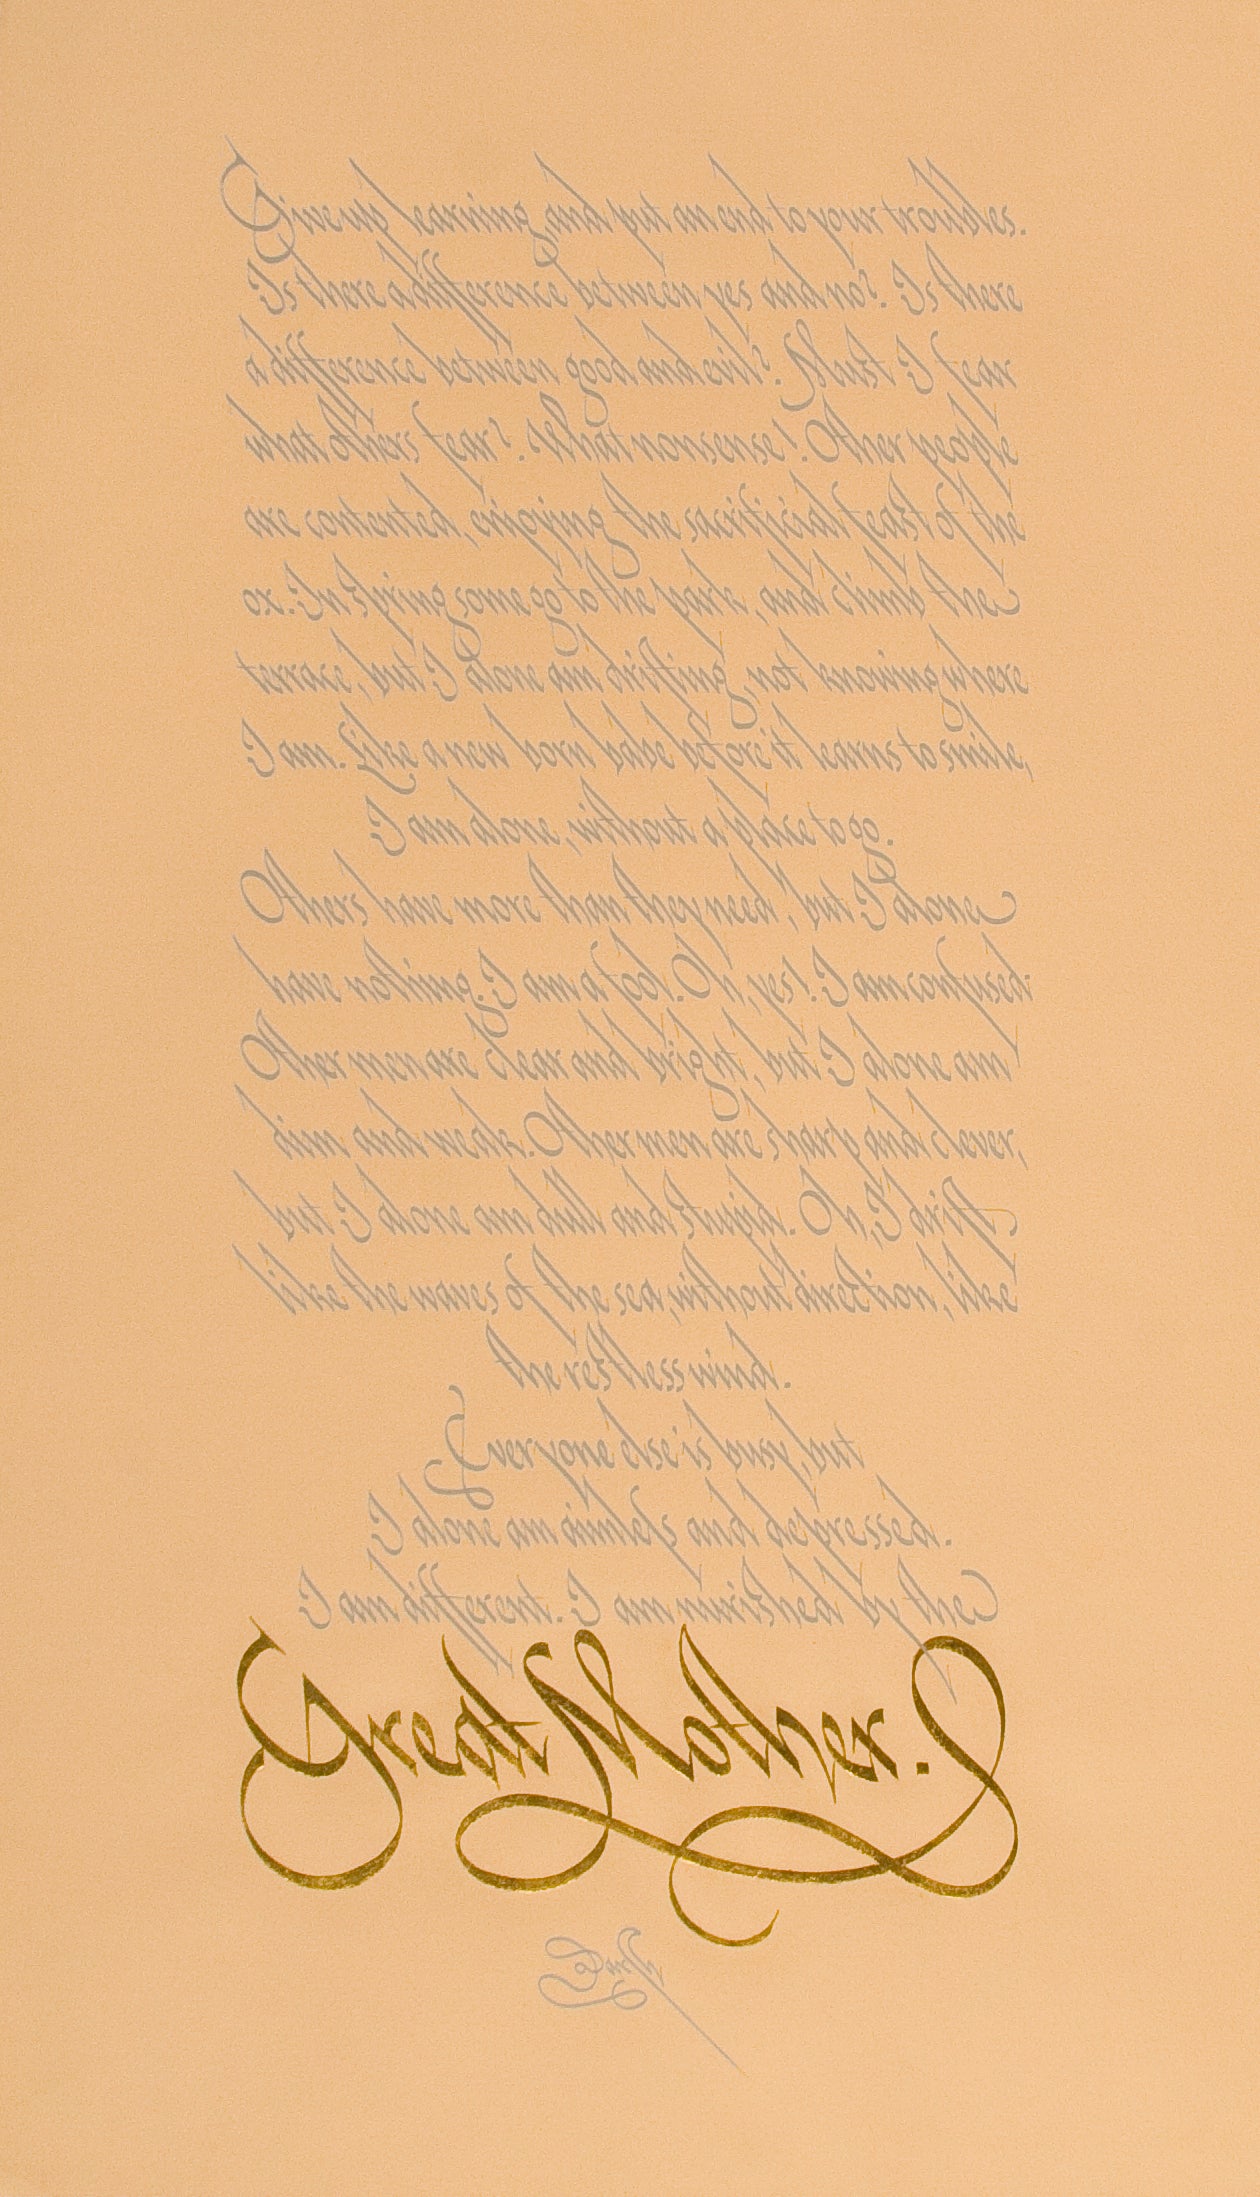 Give up learning, and put an end to your troubles.
Is there a difference between yes and no? Is there
a difference between good and evil? Must I fear
what others fear? What nonsense! Other people
are contented, enjoying the sacrificial feast of the
ox. In Spring some go to the park, and climb the
terrace, but I alone am drifting, not knowing where
I am. Like a new born babe before it learns to smile,
I am alone, without a place to go.
Others have more than they need, but I alone
have nothing. I am a fool. Oh, yes! I am confused.
Other men are clear and bright, but I alone am
dim and weak. Other men are sharp and clever,
but I alone am dull and stupid. Oh, I drift
like the waves of the sea, without direction, like
the restless wind.
Everyone else is busy, but
I alone am aimless and depressed.
I am different. I am nurished by the
Great Mother.